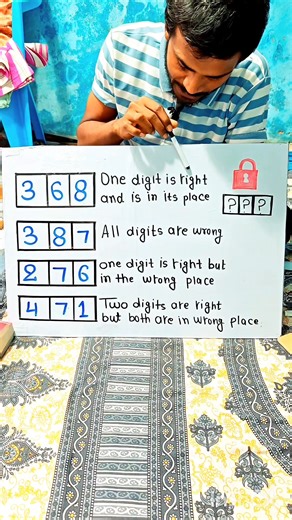 3 6 8 One digit is right
and is in its place
? ? ?
3 8 7 All digits are wrong
2 7 6 one digit is right but
in the wrong place
4 7 1 Two digits are right
but both are in wrong place